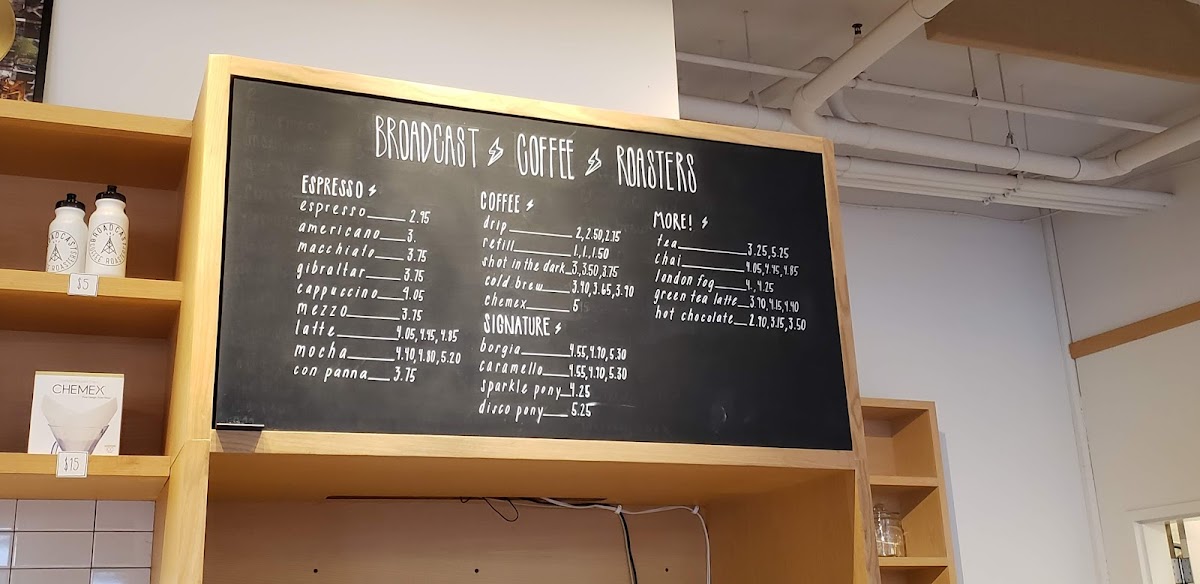 BROADCAST COFFEE ROASTERS
ESPRESSO
espresso 2.95
americano 3.
macchiato 3.75
gibraltar 3.75
cappuccino 4.05
mezzo 3.75
latte 4.05, 4.45, 4.85
mocha 4.40, 4.80, 5.20
con panna 3.75
COFFEE
drip 2, 2.50, 2.75
refill 1, 1, 1.50
shot in the dark 3, 3.50, 3.75
cold brew 3.40, 3.65, 3.90
chemex 5
SIGNATURE
borgia 4.55, 4.90, 5.30
caramello 4.55, 4.90, 5.30
sparkle pony 4.25
disco pony 5.25
MORE!
tea 3.25, 5.25
chai 4.05, 4.45, 4.85
london fog 4, 4.25
green tea latte 3.90, 4.15, 4.40
hot chocolate 2.90, 3.15, 3.50
BROADCAST
COFFEE ROASTERS
$5
CHEMEX
$15